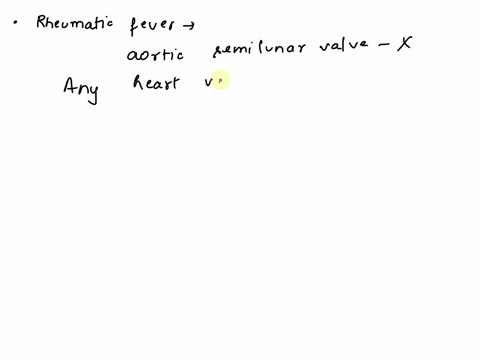 • Rheumatic fever →
aortic semilunar valve - X
Any heart v